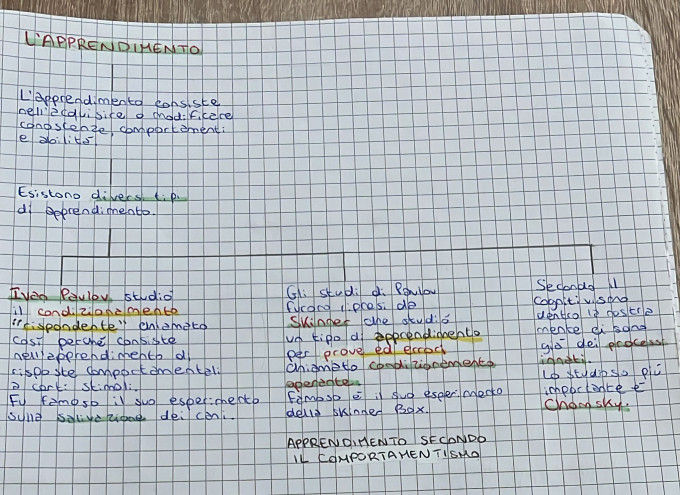 L'APPRENDIMENTO
L'apprendimento consiste
nell'acquisire o modificare
conoscenze, comportamenti
e abilità.
Esistono diversi tipi
di apprendimento.
Ivan Pavlov studiò
il condizionamento
"rispondente" chiamato
così perché consiste
nell'apprendimento di
risposte comportamentali
a certi stimoli.
Fu famoso il suo esperimento
sulla salivazione dei cani.
Gli studi di Pavlov
furono ripresi da
Skinner che studiò
un tipo di apprendimento
per prove ed errori
chiamato condizionamento
operante.
Famoso è il suo esperimento
della Skinner Box.
APPRENDIMENTO SECONDO
IL COMPORTAMENTISMO
Secondo il
Cognitivismo
dentro la nostra
mente ci sono
già dei processi
innati.
Lo studioso più
importante è
Chomsky.